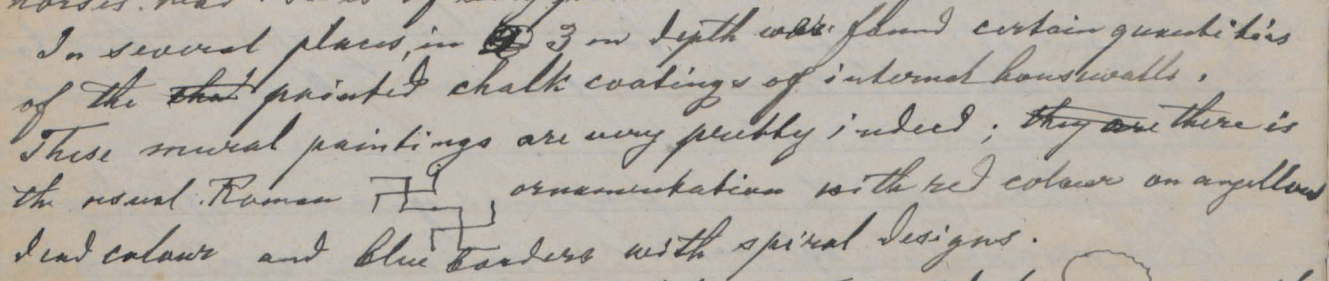 In several places, in 3 m depth was found certain quantities
of the that painted chalk coatings of internal housewalls.
These mural paintings are very pretty indeed; they are there is
the usual Roman ornamentation with red colour on a yellow
dead colour and blue borders with spiral designs.